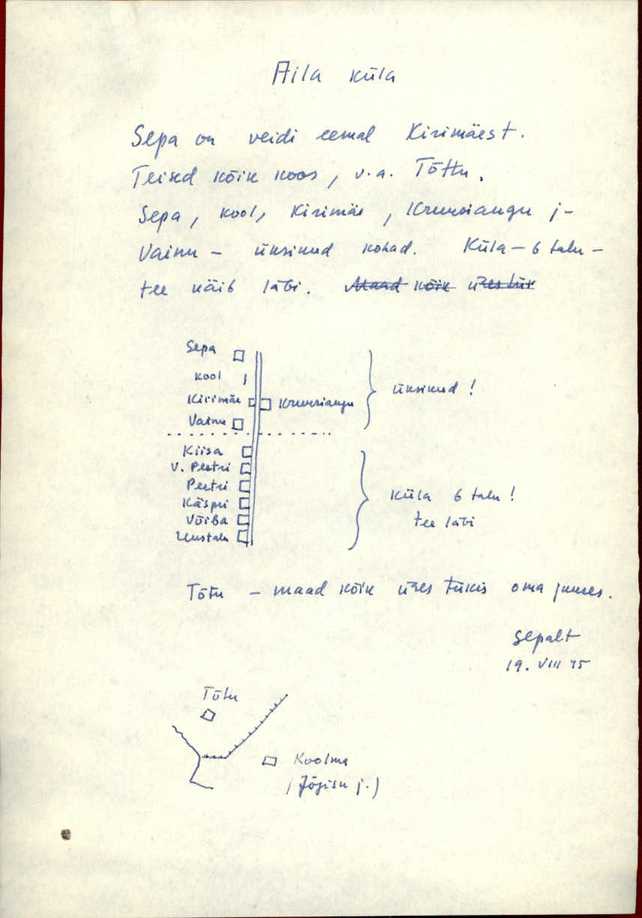 Aila küla
Sepa on veidi eemal Kirimäest.
Teised kõik koos, v.a. Tõttu.
Sepa, kool, Kirimäe, Kruusiangu j-
Vainu - üksinud kohad. Küla - 6 talu -
tee käib läbi. Maad kõik üles tük
Sepa
kool
Kirimäe Kruusiangu
Vainu
üksinud!
Kiisa
V. Peetri
Peetri
Käspri
Võiba
Uustalu
Küla 6 talu!
tee läbi
Tõtu - maad kõik ühes tükis oma juures.
Sepalt
19. VIII 75
Tõtu
Koolma
(Jõgisu j.)